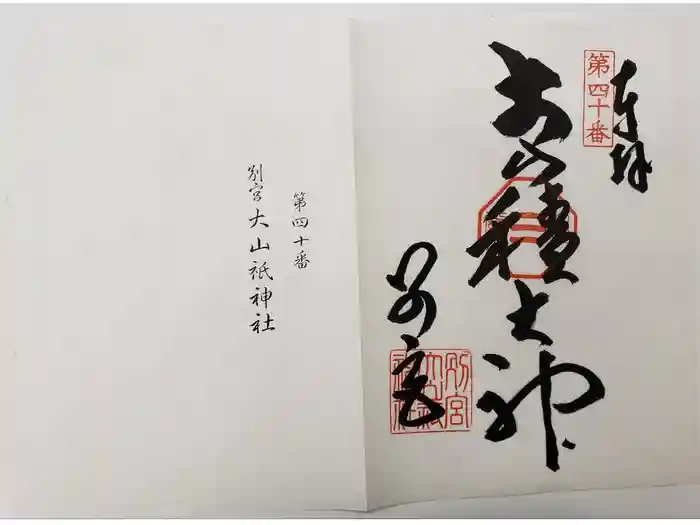 第四十番
奉拝
大山積大神
別宮
別宮大山祇神社
第四十番
別宮大山祇神社